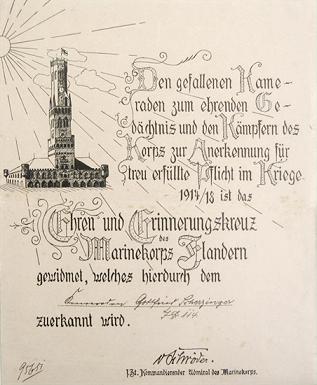 Den gefallenen Kame-
raden zum ehrenden Ge-
dächtnis und den Kämpfern des
Korps zur Anerkennung für
treu erfüllte Pflicht im Kriege
1914/18 ist das
Ehren und Erinnerungskreuz
des
Marinekorps Flandern
gewidmet, welches hierdurch dem
Kameraden Gottfried Scherzinger
zuerkannt wird.
v. Schröder.
z. Zt. Kommandierender Admiral des Marinekorps.